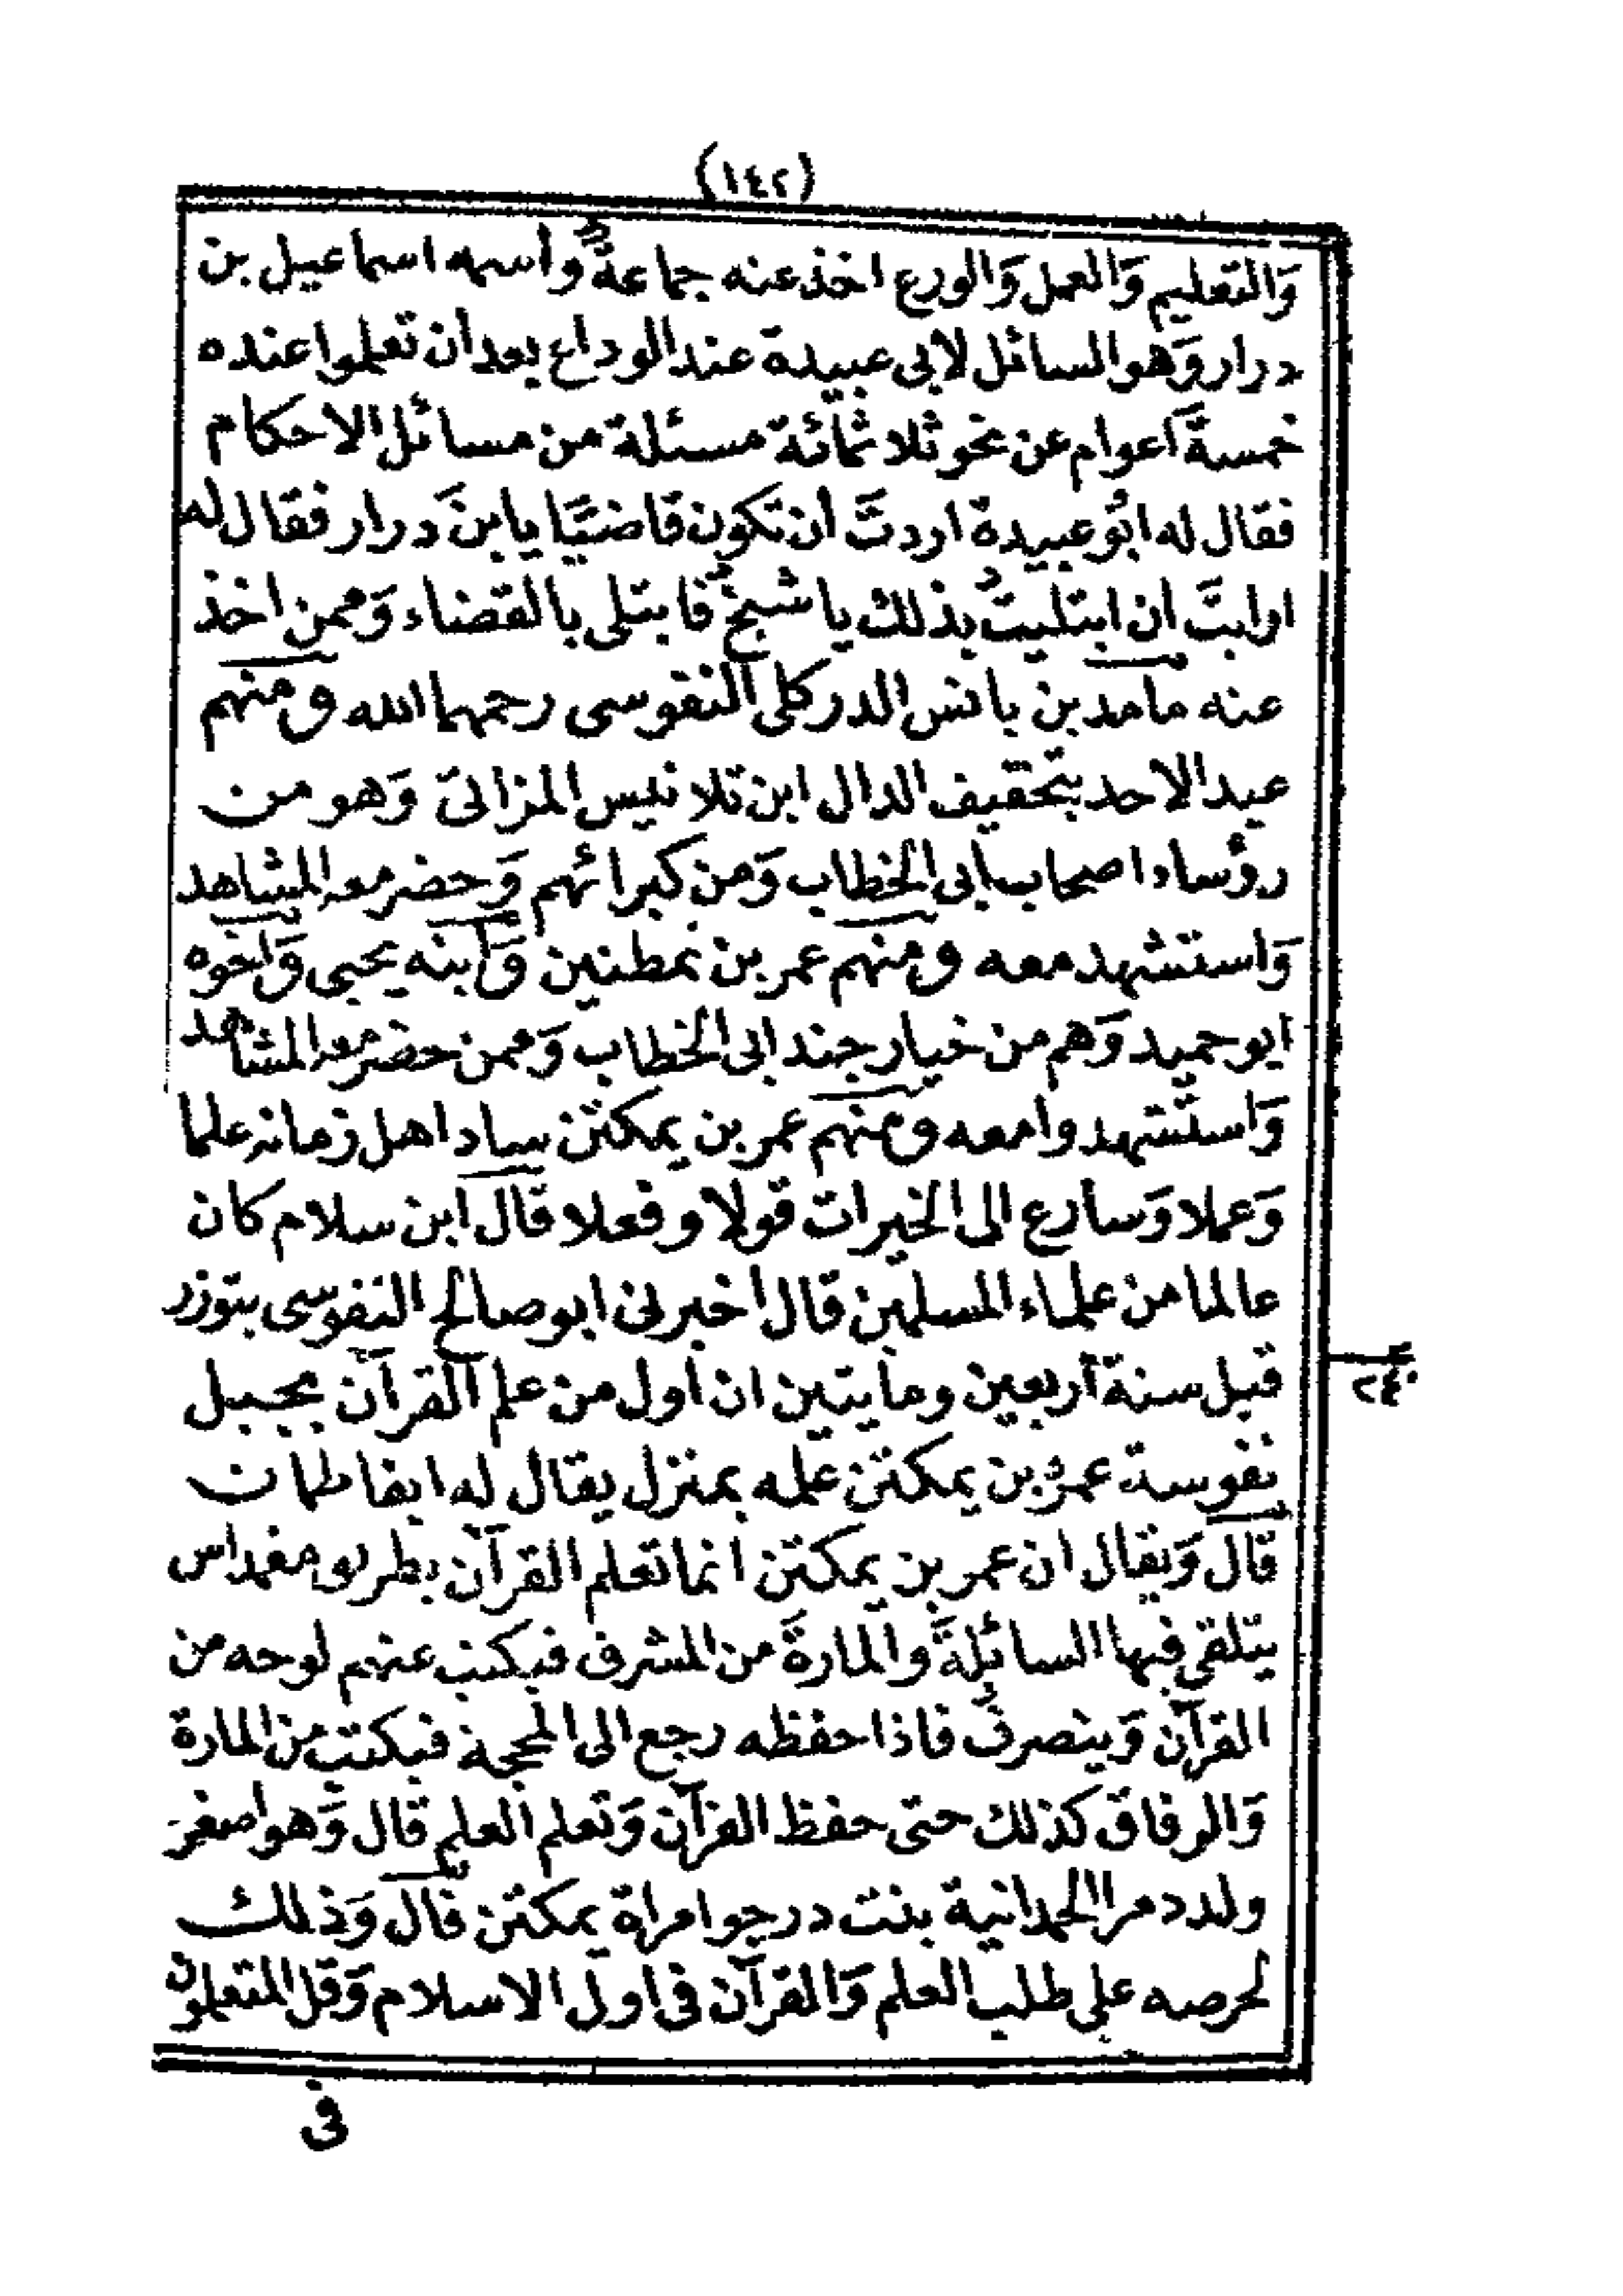 (١٤٢)
وَالتعليم وَالعمل وَالورع اخذ عنه جماعةٌ وأسمه اسماعيل بن
درار وَهو السائل لابى عبيدة عند الوداع بعد أن تعلموا عنده
خمسةَ أعوام عن نحو ثلاثمائة مسئلة من مسائل الاحكام
فقال له ابُو عبيدة اردتَ أن تكون قاضيًا يا ابنَ درار فقال له
ارايتَ ان ابتليتُ بذلك يا شيخُ فابتلى بالقضاء وَممن اخذ
عنه مامد بن يانس الدركلى النفوسى رحمهما الله ومنهم
عبد الاحد بتخفيف الدال ابن تلانيس المزاتى وَهو من
رؤساء اصحاب ابى الخطاب وَمن كبرائهم وَحضر معه المشاهد
وَاستشهد معه ومنهم عمر بن نمطنين وَابنه يحيى وَاخوه
ابو حميد وَهم من خيار جند ابى الخطاب وَممن حضر معه المشاهد
وَاستشهدوا معه ومنهم عمر بن يمكتن ساد اهل زمانه علما
وَعملا وَسارع الى الخيرات قولا وفعلا قال ابن سلام كان
عالما من علماء المسلمين قال اخبرنى ابو صالح النفوسى بتوزر
قبل سنة أربعين ومايتين ان اول من علم القرآن بجبل
٢٤٠
نفوسة عمر بن يمكتن علمه بمنزل يقال له ايفاطمان
قال وَيقال ان عمر بن يمكتن انما تعلم القرآن بطريو مغمداس
يتلقى فيها السائلةَ والمارةَ من المشرق فيكتب عنهم لوحه من
القرآن وَينصرفُ فاذا حفظه رجع الى المحجة فيكتب من المارة
وَالرفاق كذلك حتى حفظ القرآن وَتعلم العلم قال وَهو اصغر
ولد دمر الحمدانية بنت درجو امراة يمكتن قال وَذلك
لحرصه على طلب العلم وَالقرآن فى اول الاسلام وَقل المتعلمون
فى